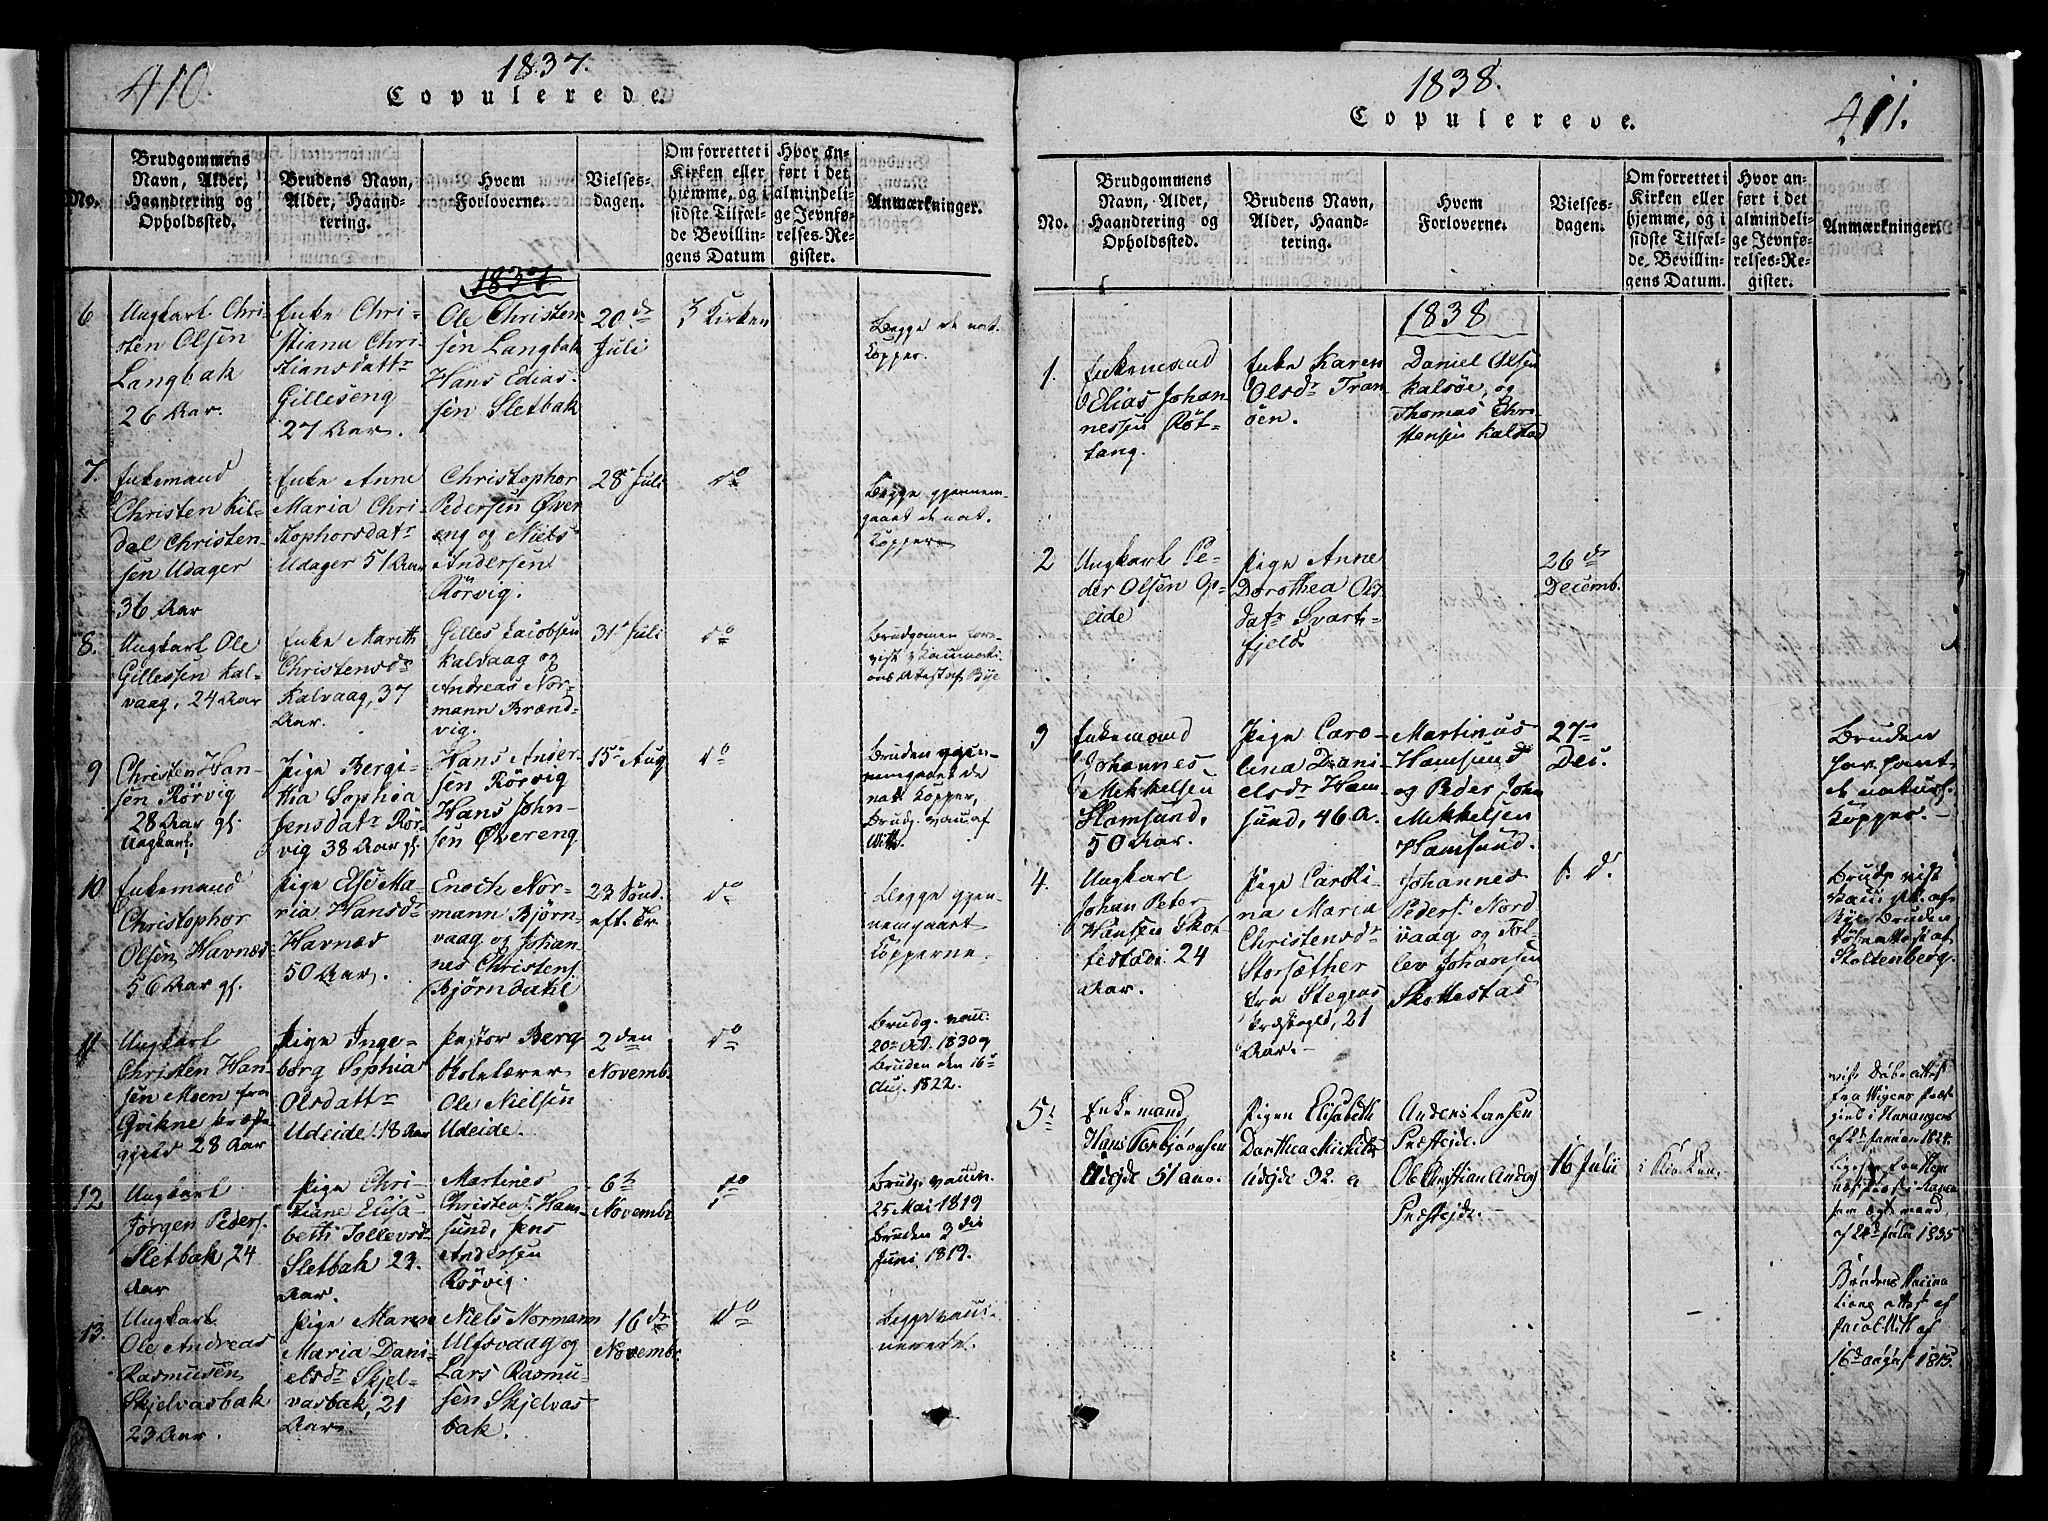 410.
1837.
Copulerede.
No.
Brudgommens
Navn, Alder,
Haandtering og
Opholdssted.
Brudens Navn,
Alder, Haand-
tering.
Hvem
Forloverne.
Vielses-
dagen.
Om forrettet i
Kirken eller
hjemme, og i
sidste Tilfæl-
de Bevillin-
gens Datum
Hvor an-
ført i det
almindeli-
ge Jevnfø-
relses-Re-
gister.
Anmærkninger.
1837
6
Ungkarl Chri-
sten Olsen
Langbak
26 Aar.
Enke Chri-
stiana Chri-
stiansdattr
Gilleseng
27 Aar.
Ole Christen-
sen Langbak
Hans Edias-
sen Sletbak
20de
Juli
I Kirken
Begge de nat.
Kopper.
7.
Enkemand
Christen Kil-
dal Christen-
sen Udager
36 Aar
Enke Anne
Maria Chri-
stophorsdatr
Udager 51 Aar
Christophor
Pedersen Øver
eng og Niels
Andersen
Rørvig.
28 Juli
do
Begge gjennem-
gaaet de nat.
Kopper
8.
Ungkarl Ole
Gillessen Kal-
vaag, 24 Aar
Enke Marith
Christensdr
Kalvaag, 37
Aar.
Gilles Jacobsen
Kalvaag og
Andreas Nor-
mann Brænd-
vig.
31 Juli
do
Brudgomen fore-
vist Vaccinati-
ons Attest af Bye
9
Christen Han-
sen Rørvig
28 Aar gl.
Ungkarl
Pige Bergi-
tha Sophia
Jensdatr Rør-
vig 38 Aar gl.
Hans Ander-
sen Rørvig
Hans John-
sen Øvereng
15 Aug
do
Bruden gjen-
nemgaaet de
nat. Kopper,
Brudg. vac. af
With.
10.
Enkemand
Christophor
Olsen Havnæs
56 Aar gl.
Pige Else Ma-
ria Hansdr
Havnæs
50 Aar.
Enoch Nor-
mann Bjørn-
vaag og Johan-
nes Christens.
Bjørndahl
23 Sønd.
eft. Tr.
do
Begge gjen-
nemgaaet
Kopperne.
11
Ungkarl
Christen Han-
sen Moen fra
Qvikne Præste
gjeld 28 Aar
Pige Inge-
borg Sophia
Olsdattr
Udeide 18 Aar
Pastor Berg
Skolelærer
Ole Nielsen
Udeide.
2den
Novemb.
do
Brudg. vacc.
20 Oct. 1830 og
Bruden den 16
Aug. 1822.
12
Ungkarl
Jørgen Peders.
Sletbak 24
Aar
Pige Chri-
stiane Elisa-
beth Tollevsd.
Sletbak 23.
Aar.
Martines
Christens. Ham-
sund, Jens
Andersen
Rørvig.
6te
Novembr
do
Brudg. vaccin.
25 Mai 1819
Bruden 2 des
Juni 1819.
13.
Ungkarl
Ole Andreas
Rasmussen
Skjelvasbak
23 Aar.
Pige Maren
Maria Dani-
elsdr Skjel-
vasbak, 21
Aar.
Niels Normann
Ulfsvaag og
Lars Rasmu-
sen Skjelvas
bak.
16de
Novembr.
do
Begge vacci-
nerede.
1838.
Copulerede.
411.
No.
Brudgommens
Navn, Alder,
Haandtering og
Opholdssted.
Brudens Navn,
Alder, Haand-
tering.
Hvem
Forloverne.
Vielses-
dagen.
Om forrettet i
Kirken eller
hjemme, og i
sidste Tilfæl-
de, Bevillin-
gens Datum.
Hvor an-
ført i det
almindeli-
ge Jevnfø-
relses-Re-
gister.
Anmærkninger.
1838
1.
Enkemand
Elias Johan
nessen Røt-
tang.
Enke Karen
Olsdr Tran
øen.
Daniel Olsen
Kalsøe, og
Thomas Chri-
stensen Kalstad
2
Ungkarl Pe-
der Olsen Op-
eide
Pige Anne
Dorothea Ols
datr Svart-
fjeld.
26de
Decemb.
3
Enkemand
Johannes
Mekkelsen
Hamsund,
50 Aar.
Pige Caro-
lina Dani-
elsdr Ham-
sund, 46 A.
Martinus
Hamsund
og Peder John
Mekkelsen
Hamsund.
27
Dec.
Bruden
har havt
de naturl.
Kopper.
4.
Ungkarl
Johan Peter
Hansen Skot-
testad 24
Aar.
Pige Caroli-
na Maria
Christensdr
Storsæther
fra Stegens
Præstegld, 21
Aar.
Johannes
Peders. Nord
vaag og Tol-
lev Johansen
Skottestad
Brudg. vist
af
Bye Bruden
attest af
Stoltenberg.
5
Enkemand
Hans Torbjørnsen
Udejde 51 aar.
Pigen Elisabeth
Dorthea
Udejde 32. a
Anders Larsen
Præstejde.
Ole Christian Anders
Præstejde.
16 Julii
i Kirken.
vist Daabs attest
fra
gield i
af 2de Januar 1824.
af 24de Julii 1835
Brudens Vaccina
tions attest af
Jacob With af
16de august 1815